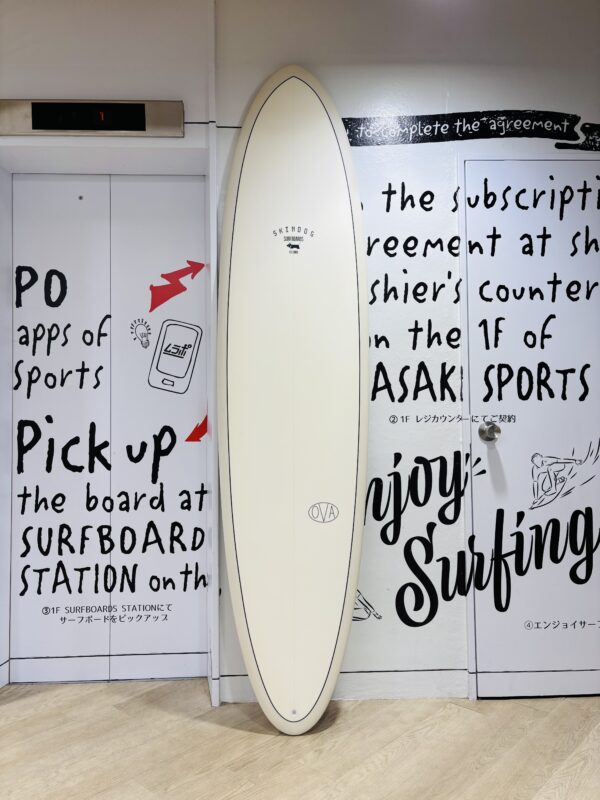 to complete the agreement
the subscripti
reement at sh
shier's counter
n the 1F of
ASAKI SPORTS
②1F レジカウンターにてご契約
njoy
Surfing
④エンジョイサーフ
SKINDOG
SURFBOARDS
OVA
PO
apps of
Sports
ムラポ
Pick up
the board at
SURFBOARD
STATION on th
③1F SURFBOARDS STATIONにて
サーフボードをピックアップ